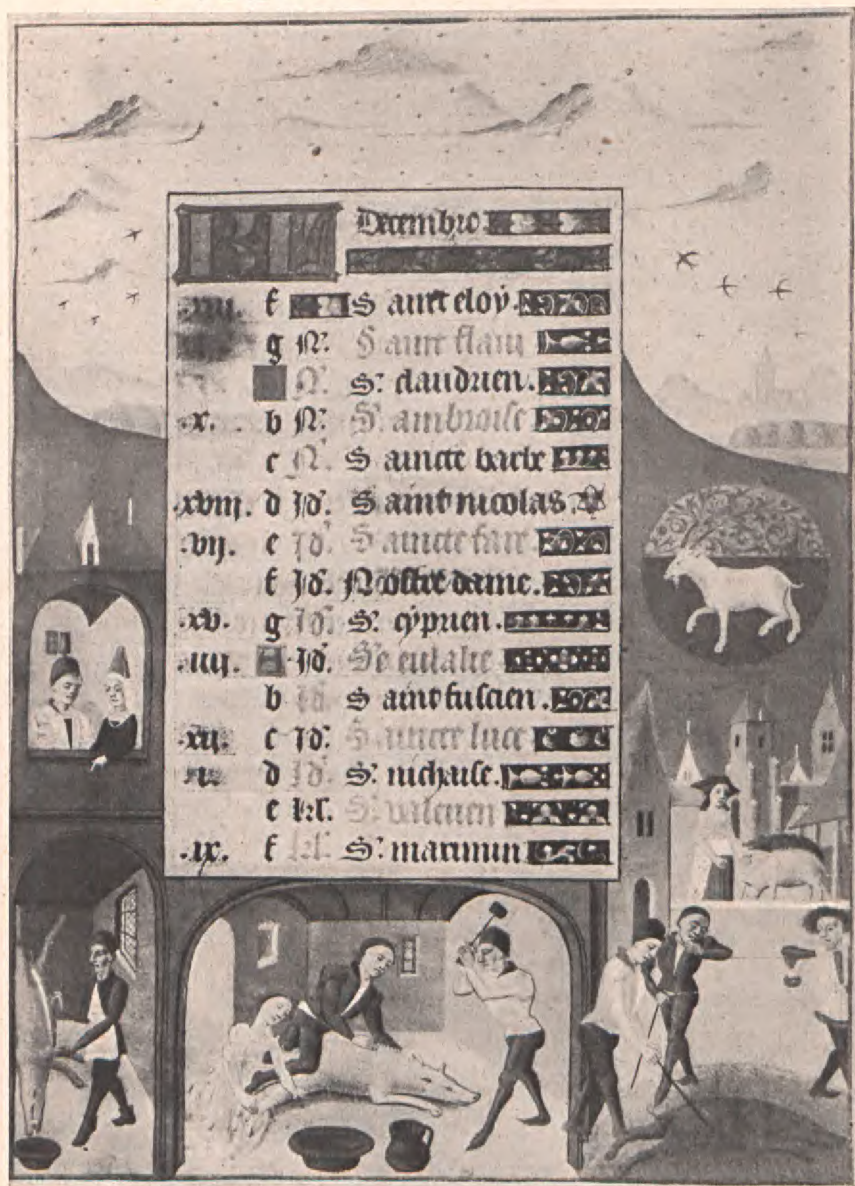 KL Decembre
f Sainct eloy.
g N. Sainct flaui
N. S. claudien.
.x. b N. S. ambroise
c N. Saincte barbe
.xviij. d Id. Saint nicolas
.vij. e Id. Saincte fare
f Id. Nostre dame.
.xv. g Id. S. cyprien.
.iiij. A Id. Se eulalie
b Id. Sainct fuscien.
.xij. c Id. Saincte luce
d Id. S. nichaise.
e kl. S. valerien
.ix. f kl. S. maximin